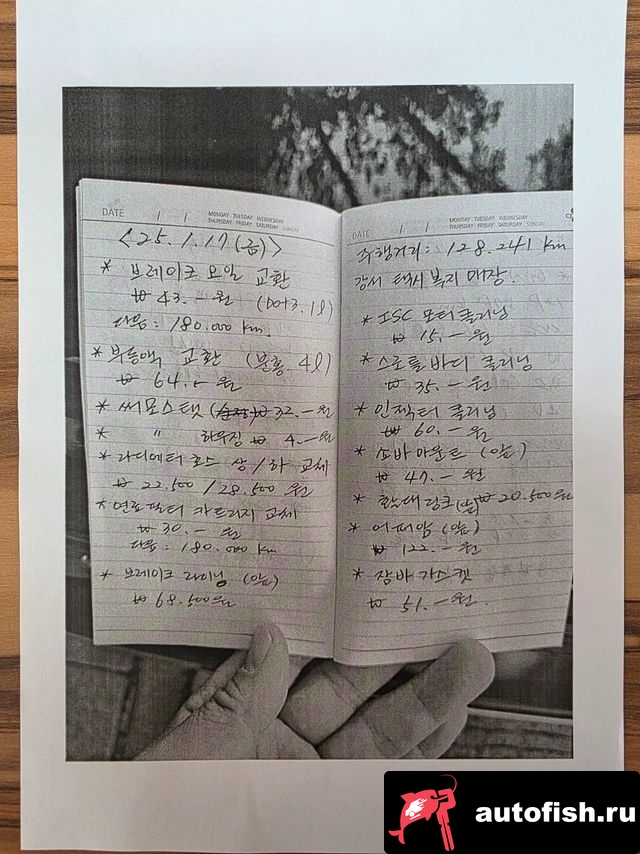 DATE / / MONDAY TUESDAY WEDNESDAY
THURSDAY FRIDAY SATURDAY SUNDAY
<25. 1. 17 (금)>
* 브레이크 오일 교환
₩ 43.-원 (DOT3. 1ℓ)
다음: 180.000 km.
* 부동액 교환 (분홍 4ℓ)
₩ 64.- 원
* 써모스탯 ₩ 32.-원
* " 하우징 ₩ 4.-원
* 라디에터 호스 상/하 교체
₩ 22.500 / 28.500 원
* 연료필터 카트리지 교체
₩ 30.-원
다음: 180.000 km
* 브레이크 라이닝 (앞)
₩ 68.500원
DATE / / MONDAY TUESDAY WEDNESDAY
THURSDAY FRIDAY SATURDAY SUNDAY
주행거리: 128.241 km
강서 택시 복지 매장.
* ISC 모터 클리닝
₩ 15.-원
* 스로틀 바디 클리닝
₩ 35.-원
* 인젝터 클리닝
₩ 60.-원
* 쇼바 마운트 (앞)
₩ 47.-원
* 활대링크(앞) ₩ 20.500원
* 어퍼암 (앞)
₩ 122.-원
* 잠바 가스켓
₩ 51.-원.
autofish.ru